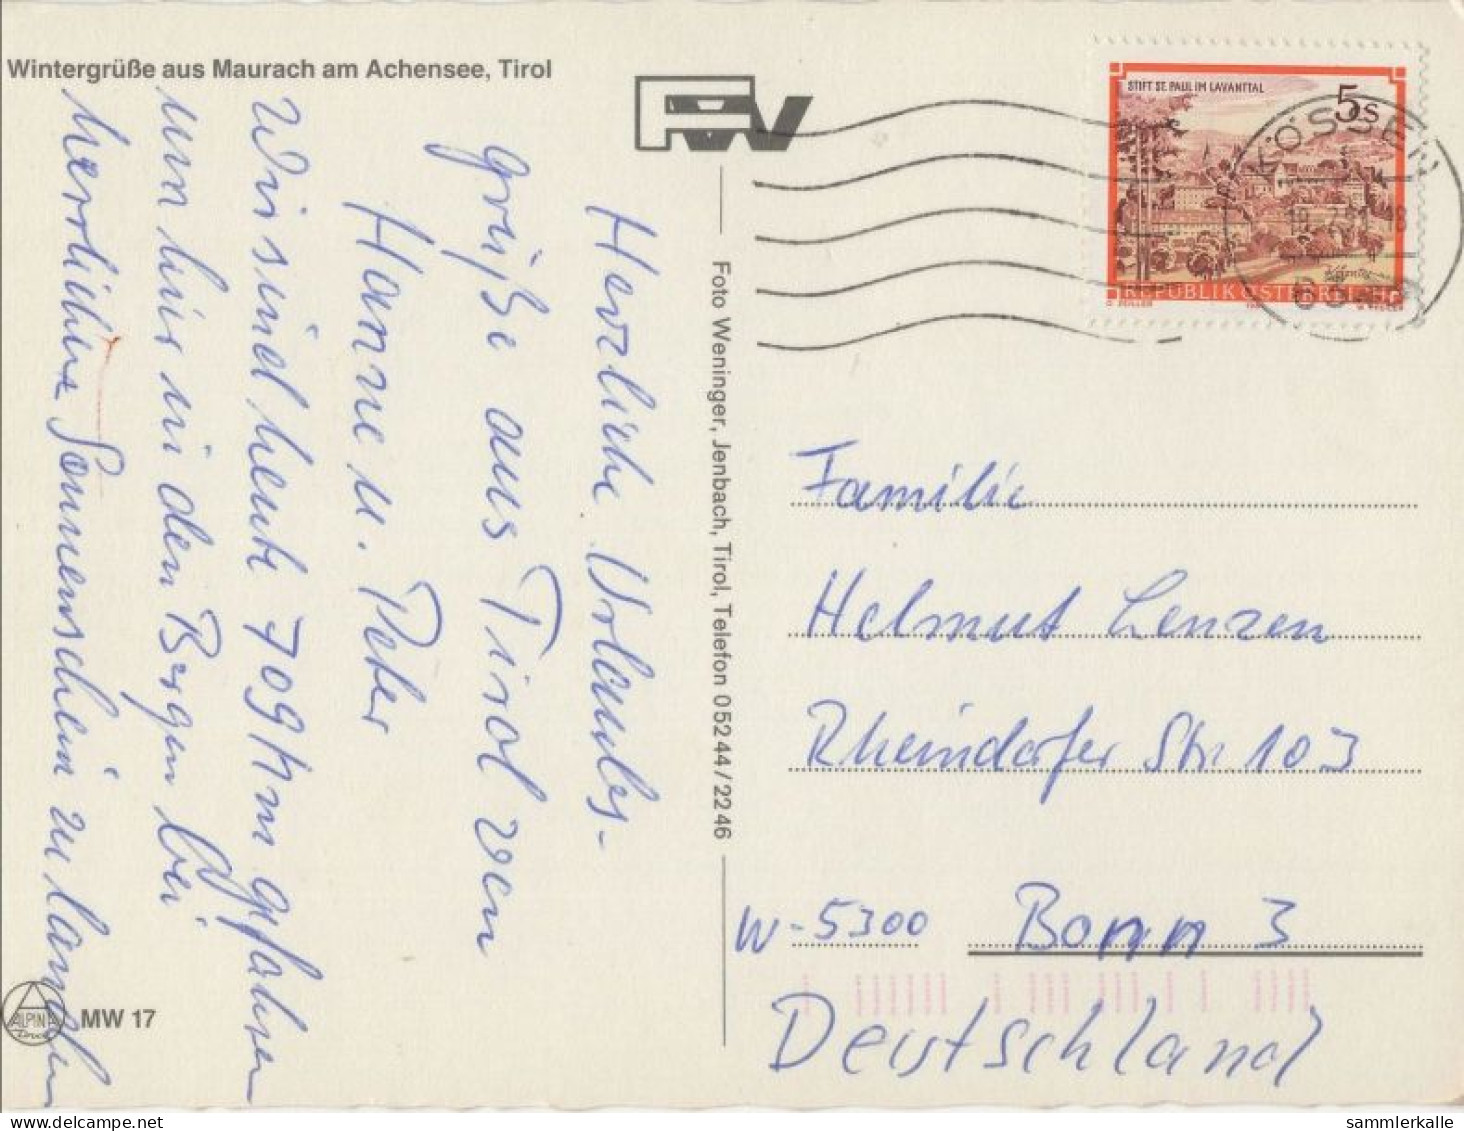 Wintergrüße aus Maurach am Achensee, Tirol
FW
STIFT ST. PAUL IM LAVANTTAL
5 S
KÖSSEN
REPUBLIK ÖSTERREICH
Herzliche Urlaubs-
grüße aus Tirol von
Hanne u. Peter
Wir sind heute 709 Km gefahren
um hier in den Bergen bei
herrlichem Sonnenschein zu landen
Foto Weninger, Jenbach, Tirol, Telefon 05244/2246
Familie
Helmut Lenzen
Rheindorfer Str. 103
W-5300 Bonn 3
Deutschland
ALPINA
Druck
MW 17
delcampe.net
sammlerkalle